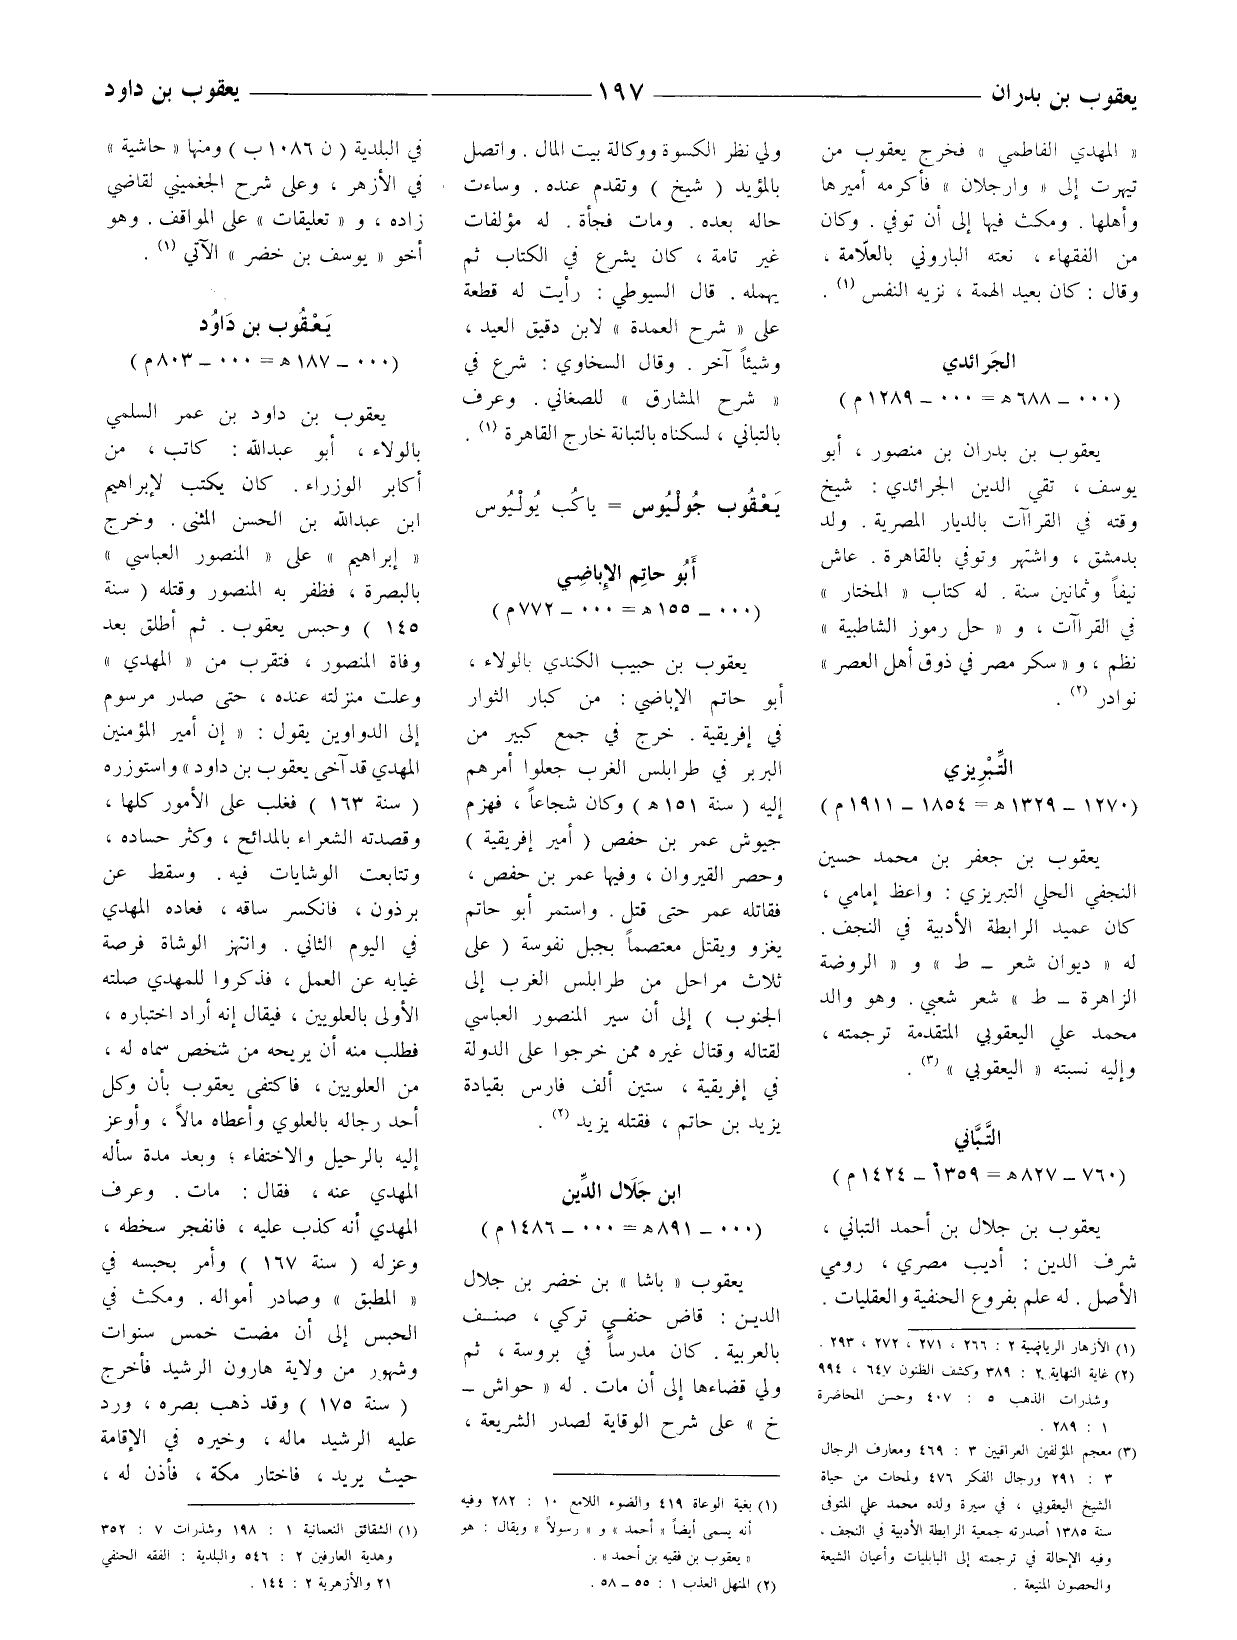 يعقوب بن بدران ١٩٧ يعقوب بن داود
« المهدي الفاطمي » فخرج يعقوب من
تيهرت إلى « وارجلان » فأكرمه أميرها
وأهلها . ومكث فيها إلى أن توفي . وكان
من الفقهاء ، نعته الباروني بالعلّامة ،
وقال : كان بعيد الهمة ، نزيه النفس (١) .
الجَرائدي
(٠٠٠ ــ ٦٨٨ هـ = ٠٠٠ ــ ١٢٨٩ م )
يعقوب بن بدران بن منصور ، أبو
يوسف ، تقي الدين الجرائدي : شيخ
وقته في القراآت بالديار المصرية . ولد
بدمشق ، واشتهر وتوفي بالقاهرة . عاش
نيفاً وثمانين سنة . له كتاب « المختار »
في القراآت ، و « حل رموز الشاطبية »
نظم ، و « سكر مصر في ذوق أهل العصر »
نوادر (٢) .
التِّبْرِيزي
(١٢٧٠ ــ ١٣٢٩ هـ = ١٨٥٤ ــ ١٩١١ م )
يعقوب بن جعفر بن محمد حسين
النجفي الحلي التبريزي : واعظ إمامي ،
كان عميد الرابطة الأدبية في النجف .
له « ديوان شعر ــ ط » و « الروضة
الزاهرة ــ ط » شعر شعبي . وهو والد
محمد علي اليعقوبي المتقدمة ترجمته ،
وإليه نسبته « اليعقوبي » (٣) .
التَّبَّاني
(٧٦٠ ــ ٨٢٧ هـ = ١٣٥٩ ــ ١٤٢٤ م )
يعقوب بن جلال بن أحمد التباني ،
شرف الدين : أديب مصري ، رومي
الأصل . له علم بفروع الحنفية والعقليات .
(١) الأزهار الرياضية ٢ : ٢٦٦ ، ٢٧١ ، ٢٧٢ ، ٢٩٣ .
(٢) غاية النهاية ٢ : ٣٨٩ وكشف الظنون ٦٤٧ ، ٩٩٤
وشذرات الذهب ٥ : ٤٠٧ وحسن المحاضرة
١ : ٢٨٩ .
(٣) معجم المؤلفين العراقيين ٣ : ٤٦٩ ومعارف الرجال
٣ : ٢٩١ ورجال الفكر ٤٧٦ ولمحات من حياة
الشيخ اليعقوبي ، في سيرة ولده محمد علي المتوفى
سنة ١٣٨٥ أصدرته جمعية الرابطة الأدبية في النجف ،
وفيه الإحالة في ترجمته إلى البابليات وأعيان الشيعة
والحصون المنيعة .
ولي نظر الكسوة ووكالة بيت المال . واتصل
بالمؤيد ( شيخ ) وتقدم عنده . وساءت
حاله بعده . ومات فجأة . له مؤلفات
غير تامة ، كان يشرع في الكتاب ثم
يهمله . قال السيوطي : رأيت له قطعة
على « شرح العمدة » لابن دقيق العيد ،
وشيئاً آخر . وقال السخاوي : شرع في
« شرح المشارق » للصغاني . وعرف
بالتباني ، لسكناه بالتبانة خارج القاهرة (١) .
يَعْقُوب جُولْيُوس = ياكُب يُولْيُوس
أَبُو حاتِم الإِباضِي
(٠٠٠ ــ ١٥٥ هـ = ٠٠٠ ــ ٧٧٢ م )
يعقوب بن حبيب الكندي بالولاء ،
أبو حاتم الإباضي : من كبار الثوار
في إفريقية . خرج في جمع كبير من
البربر في طرابلس الغرب جعلوا أمرهم
إليه ( سنة ١٥١ هـ ) وكان شجاعاً ، فهزم
جيوش عمر بن حفص ( أمير إفريقية )
وحصر القيروان ، وفيها عمر بن حفص ،
فقاتله عمر حتى قتل . واستمر أبو حاتم
يغزو ويقتل معتصماً بجبل نفوسة ( على
ثلاث مراحل من طرابلس الغرب إلى
الجنوب ) إلى أن سير المنصور العباسي
لقتاله وقتال غيره ممن خرجوا على الدولة
في إفريقية ، ستين ألف فارس بقيادة
يزيد بن حاتم ، فقتله يزيد (٢) .
ابن جَلَال الدِّين
(٠٠٠ ــ ٨٩١ هـ = ٠٠٠ ــ ١٤٨٦ م )
يعقوب « باشا » بن خضر بن جلال
الدين : قاض حنفي تركي ، صنف
بالعربية . كان مدرساً في بروسة ، ثم
ولي قضاءها إلى أن مات . له « حواش ــ
خ » على شرح الوقاية لصدر الشريعة ،
(١) بغية الوعاة ٤١٩ والضوء اللامع ١٠ : ٢٨٢ وفيه
أنه يسمى أيضاً « أحمد » و « رسولاً » ويقال : هو
« يعقوب بن فقيه بن أحمد » .
(٢) المنهل العذب ١ : ٥٥ ــ ٥٨ .
في البلدية ( ن ١٠٨٦ ب ) ومنها « حاشية »
في الأزهر ، وعلى شرح الجغميني لقاضي
زاده ، و « تعليقات » على المواقف . وهو
أخو « يوسف بن خضر » الآتي (١) .
يَعْقُوب بن دَاوُد
(٠٠٠ ــ ١٨٧ هـ = ٠٠٠ ــ ٨٠٣ م )
يعقوب بن داود بن عمر السلمي
بالولاء ، أبو عبدالله : كاتب ، من
أكابر الوزراء . كان يكتب لإبراهيم
ابن عبدالله بن الحسن المثنى . وخرج
« إبراهيم » على « المنصور العباسي »
بالبصرة ، فظفر به المنصور وقتله ( سنة
١٤٥ ) وحبس يعقوب . ثم أطلق بعد
وفاة المنصور ، فتقرب من « المهدي »
وعلت منزلته عنده ، حتى صدر مرسوم
إلى الدواوين يقول : « إن أمير المؤمنين
المهدي قد آخى يعقوب بن داود » واستوزره
( سنة ١٦٣ ) فغلب على الأمور كلها ،
وقصدته الشعراء بالمدائح ، وكثر حساده ،
وتتابعت الوشايات فيه . وسقط عن
برذون ، فانكسر ساقه ، فعاده المهدي
في اليوم الثاني . وانتهز الوشاة فرصة
غيابه عن العمل ، فذكروا للمهدي صلته
الأولى بالعلويين ، فيقال إنه أراد اختباره ،
فطلب منه أن يريحه من شخص سماه له ،
من العلويين ، فاكتفى يعقوب بأن وكل
أحد رجاله بالعلوي وأعطاه مالاً ، وأوعز
إليه بالرحيل والاختفاء ؛ وبعد مدة سأله
المهدي عنه ، فقال : مات . وعرف
المهدي أنه كذب عليه ، فانفجر سخطه ،
وعزله ( سنة ١٦٧ ) وأمر بحبسه في
« المطبق » وصادر أمواله . ومكث في
الحبس إلى أن مضت خمس سنوات
وشهور من ولاية هارون الرشيد فأخرج
( سنة ١٧٥ ) وقد ذهب بصره ، ورد
عليه الرشيد ماله ، وخيره في الإقامة
حيث يريد ، فاختار مكة ، فأذن له ،
(١) الشقائق النعمانية ١ : ١٩٨ وشذرات ٧ : ٣٥٢
وهدية العارفين ٢ : ٥٤٦ والبلدية : الفقه الحنفي
٢١ والأزهرية ٢ : ١٤٤ .